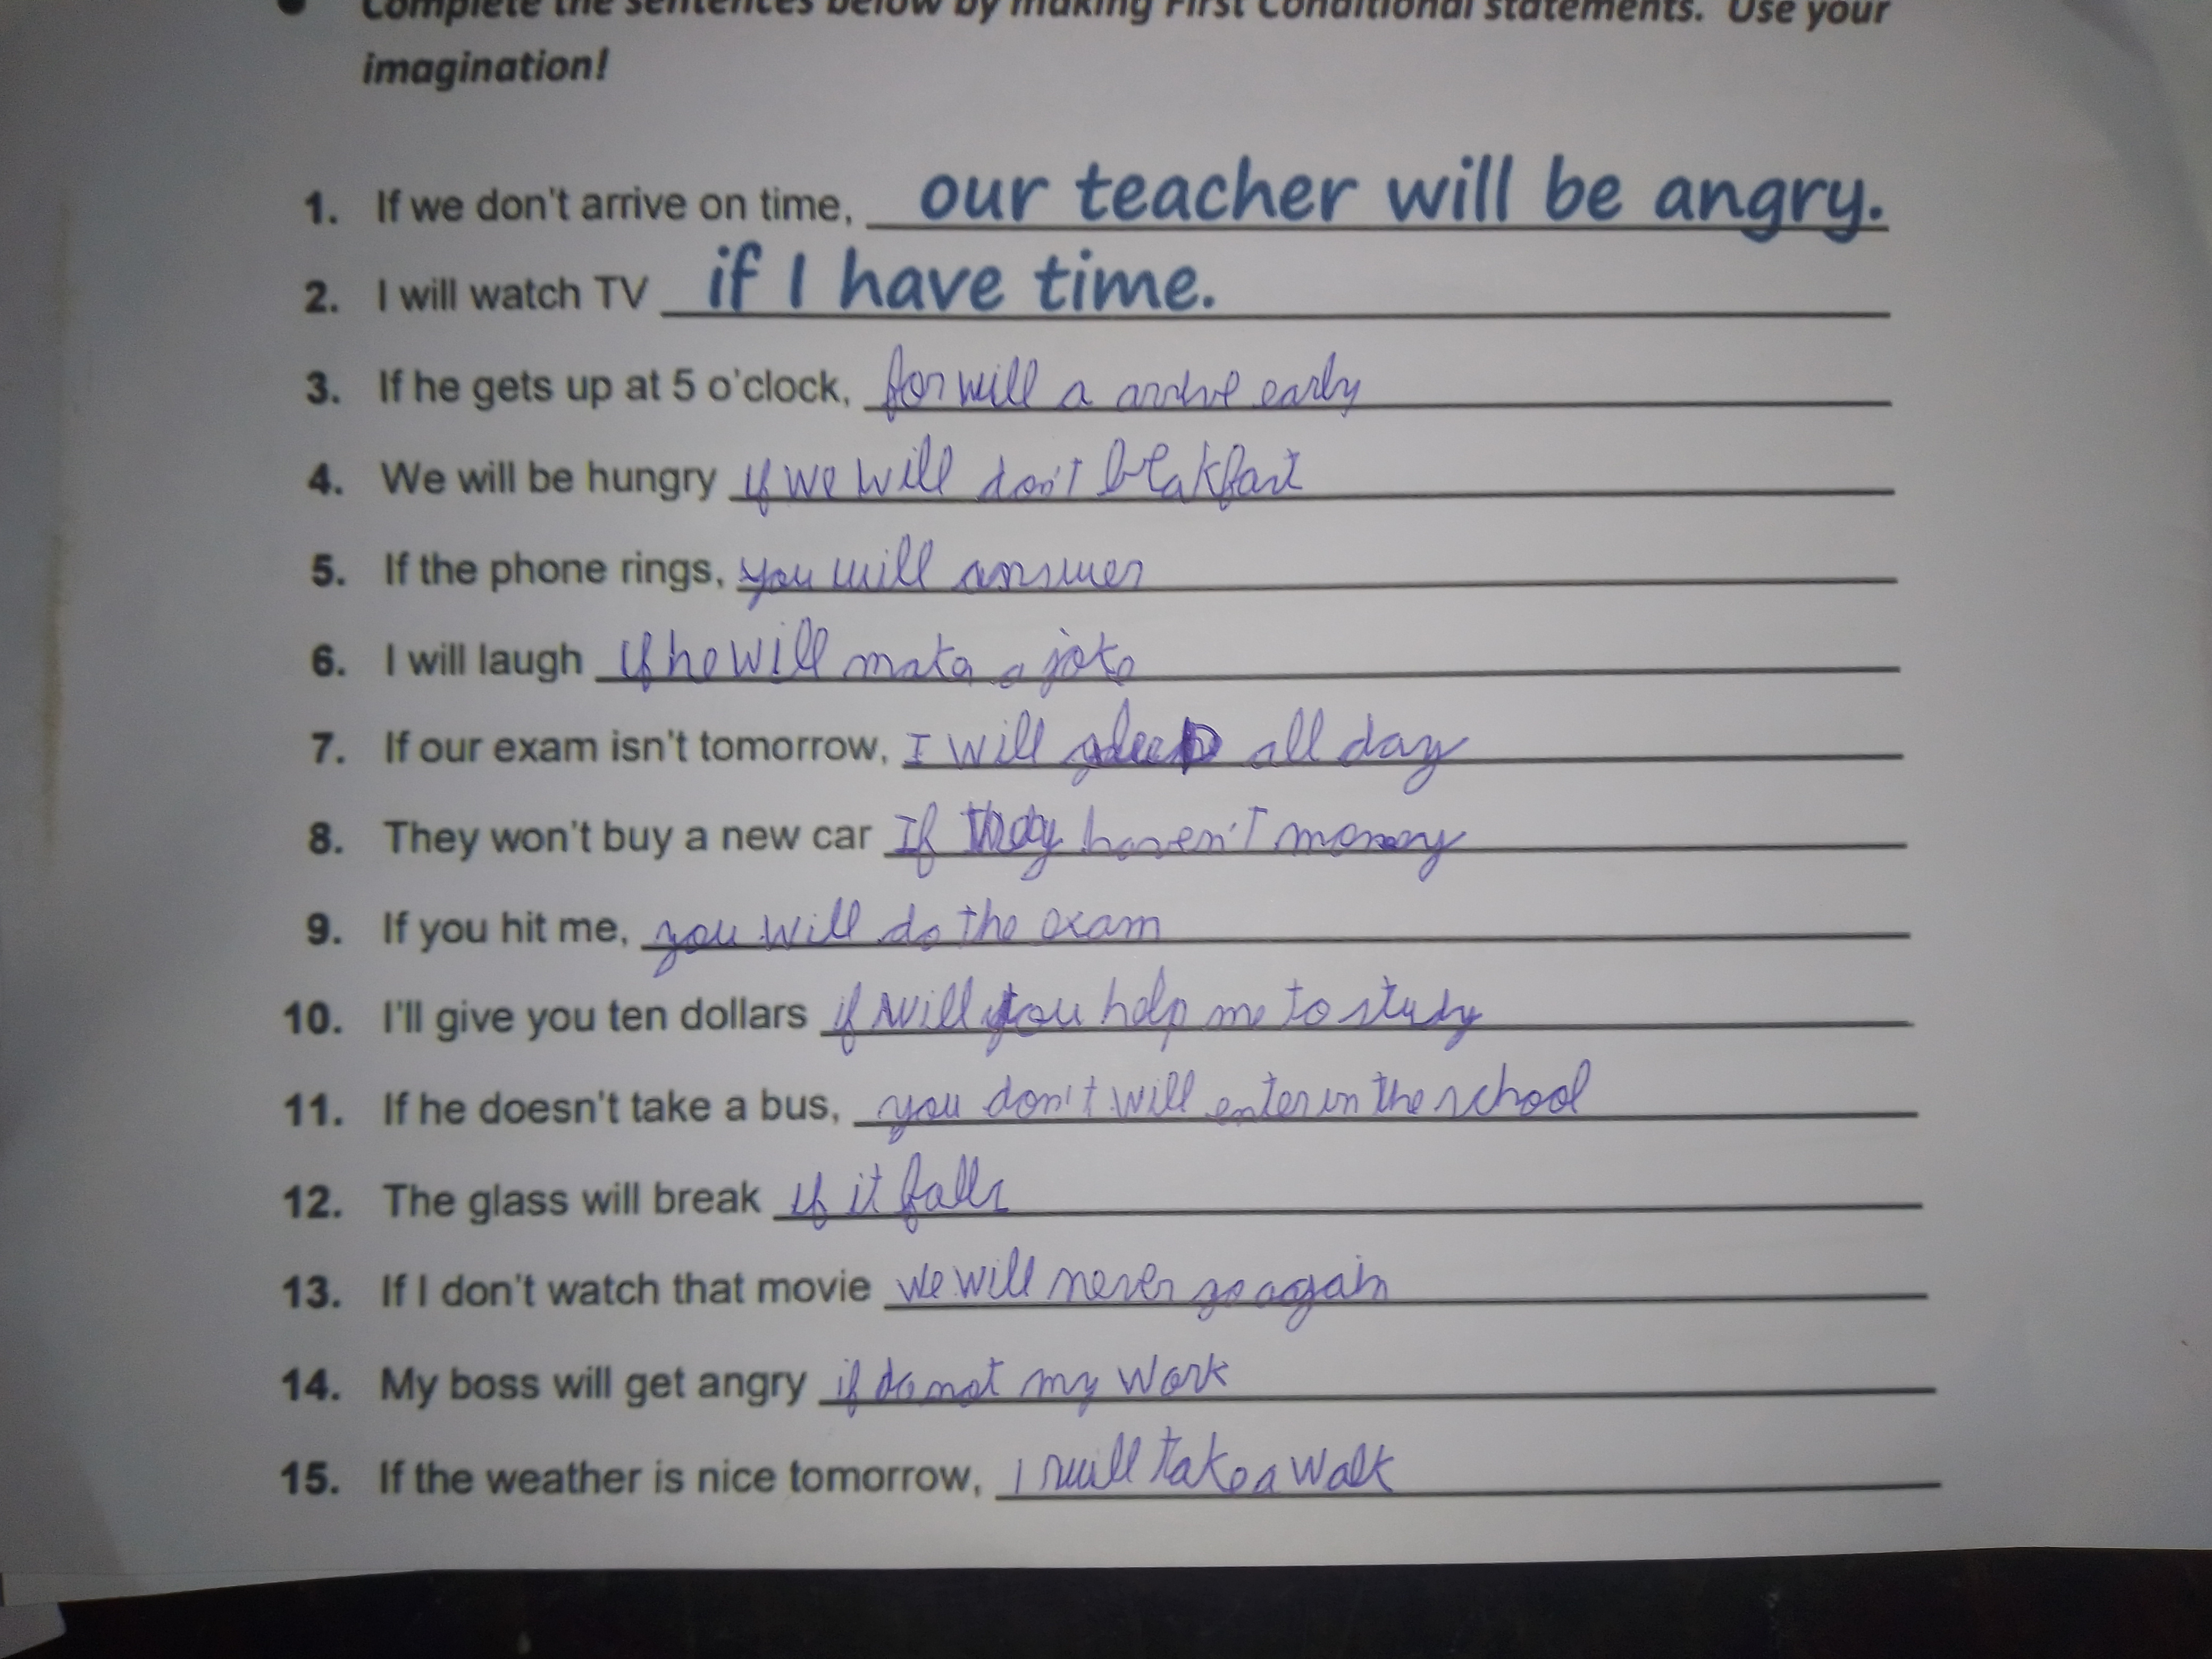 Complete the sentences below by making First Conditional statements. Use your
imagination!
1. If we don't arrive on time, our teacher will be angry.
2. I will watch TV if I have time.
3. If he gets up at 5 o'clock, for will a arrive early
4. We will be hungry if we will don't breakfast
5. If the phone rings, you will answer
6. I will laugh if he will make a joke
7. If our exam isn't tomorrow, I will sleep all day
8. They won't buy a new car If they haven't money
9. If you hit me, you will do the exam
10. I'll give you ten dollars if will you help me to study
11. If he doesn't take a bus, you don't will enter in the school
12. The glass will break if it falls
13. If I don't watch that movie we will never go again
14. My boss will get angry if do not my work
15. If the weather is nice tomorrow, I will take a walk